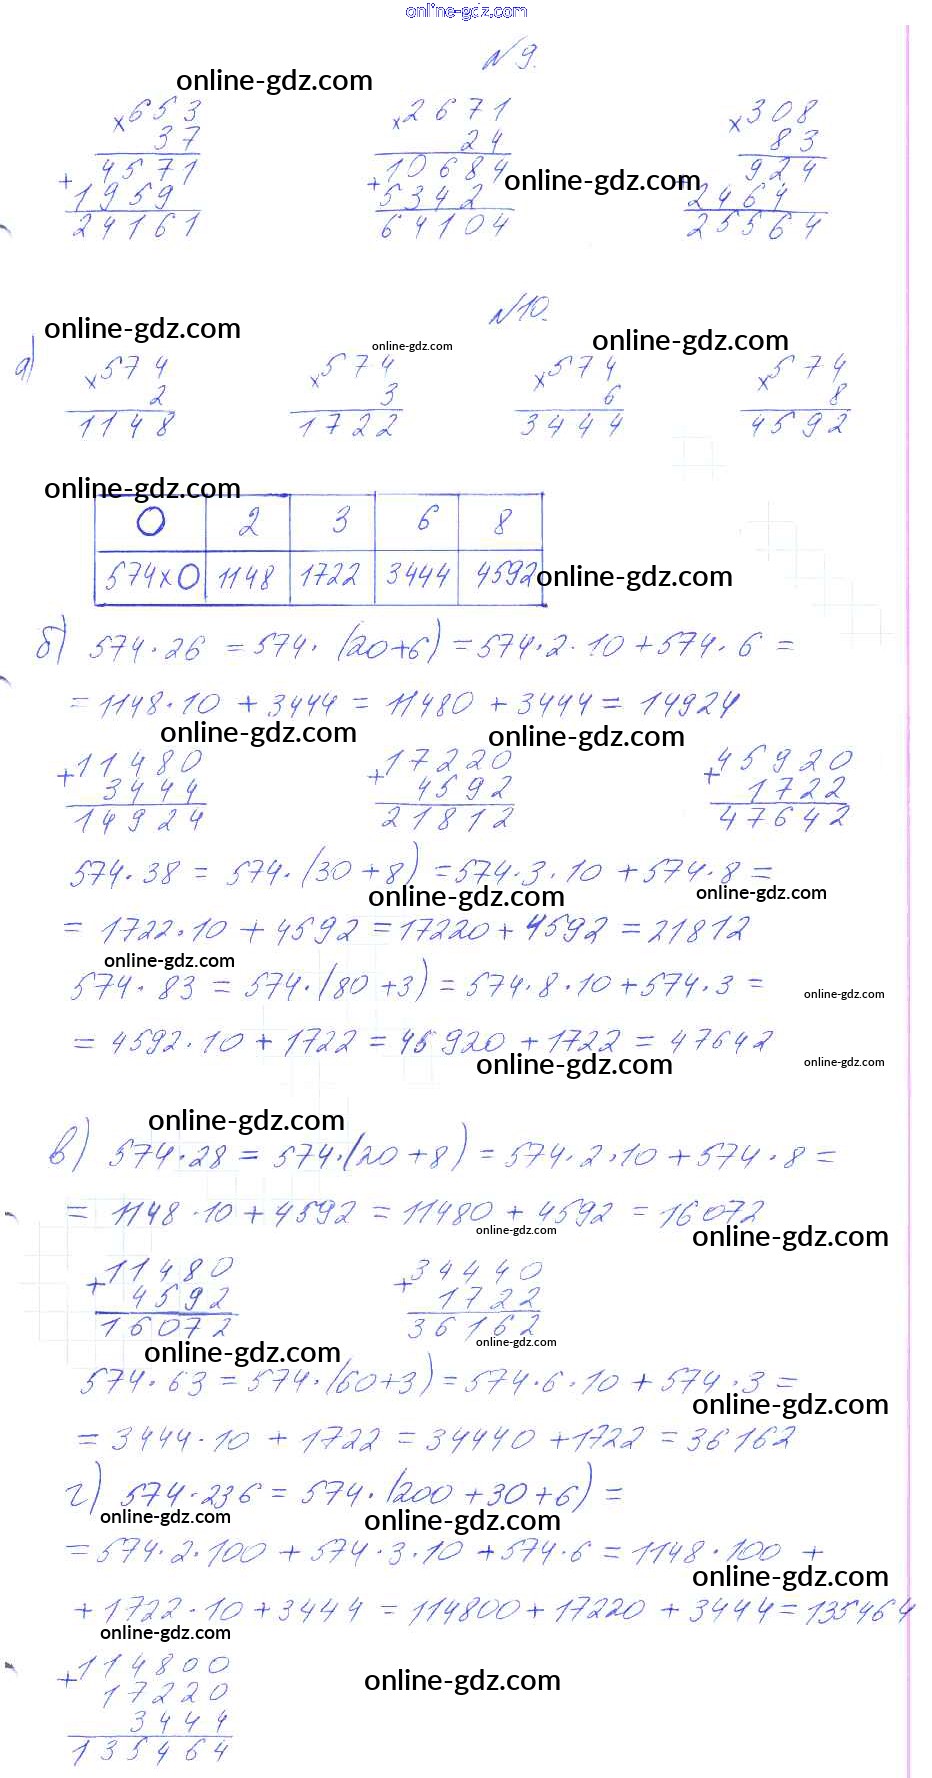 online-gdz.com
№9.
online-gdz.com
×653 ×2671 ×308
37 24 83
+4571 +10684 online-gdz.com +924
1959 5342 2464
24161 64104 25564
№10.
online-gdz.com online-gdz.com online-gdz.com
а) ×574 ×574 ×574 ×574
2 3 6 8
1148 1722 3444 4592
online-gdz.com
O 2 3 6 8
574×O 1148 1722 3444 4592 online-gdz.com
б) 574·26 = 574·(20+6) = 574·2·10+574·6 =
= 1148·10 + 3444 = 11480 + 3444 = 14924
online-gdz.com online-gdz.com
+11480 +17220 +45920
3444 4592 1722
14924 21812 47642
574·38 = 574·(30+8) = 574·3·10 + 574·8 =
online-gdz.com online-gdz.com
= 1722·10 + 4592 = 17220 + 4592 = 21812
online-gdz.com
574·83 = 574·(80+3) = 574·8·10+574·3 =
online-gdz.com
= 4592·10 + 1722 = 45920 + 1722 = 47642
online-gdz.com online-gdz.com
online-gdz.com
в) 574·28 = 574·(20+8) = 574·2·10 + 574·8 =
= 1148·10 + 4592 = 11480 + 4592 = 16072
online-gdz.com online-gdz.com
+11480 +34440
4592 1722
16072 36162
online-gdz.com online-gdz.com
574·63 = 574·(60+3) = 574·6·10 + 574·3 =
online-gdz.com
= 3444·10 + 1722 = 34440 +1722 = 36162
г) 574·236 = 574·(200+30+6) =
online-gdz.com online-gdz.com
= 574·2·100 + 574·3·10 + 574·6 = 1148·100 +
online-gdz.com
+ 1722·10 + 3444 = 114800 + 17220 + 3444 = 135464
online-gdz.com
+114800
17220 online-gdz.com
3444
135464